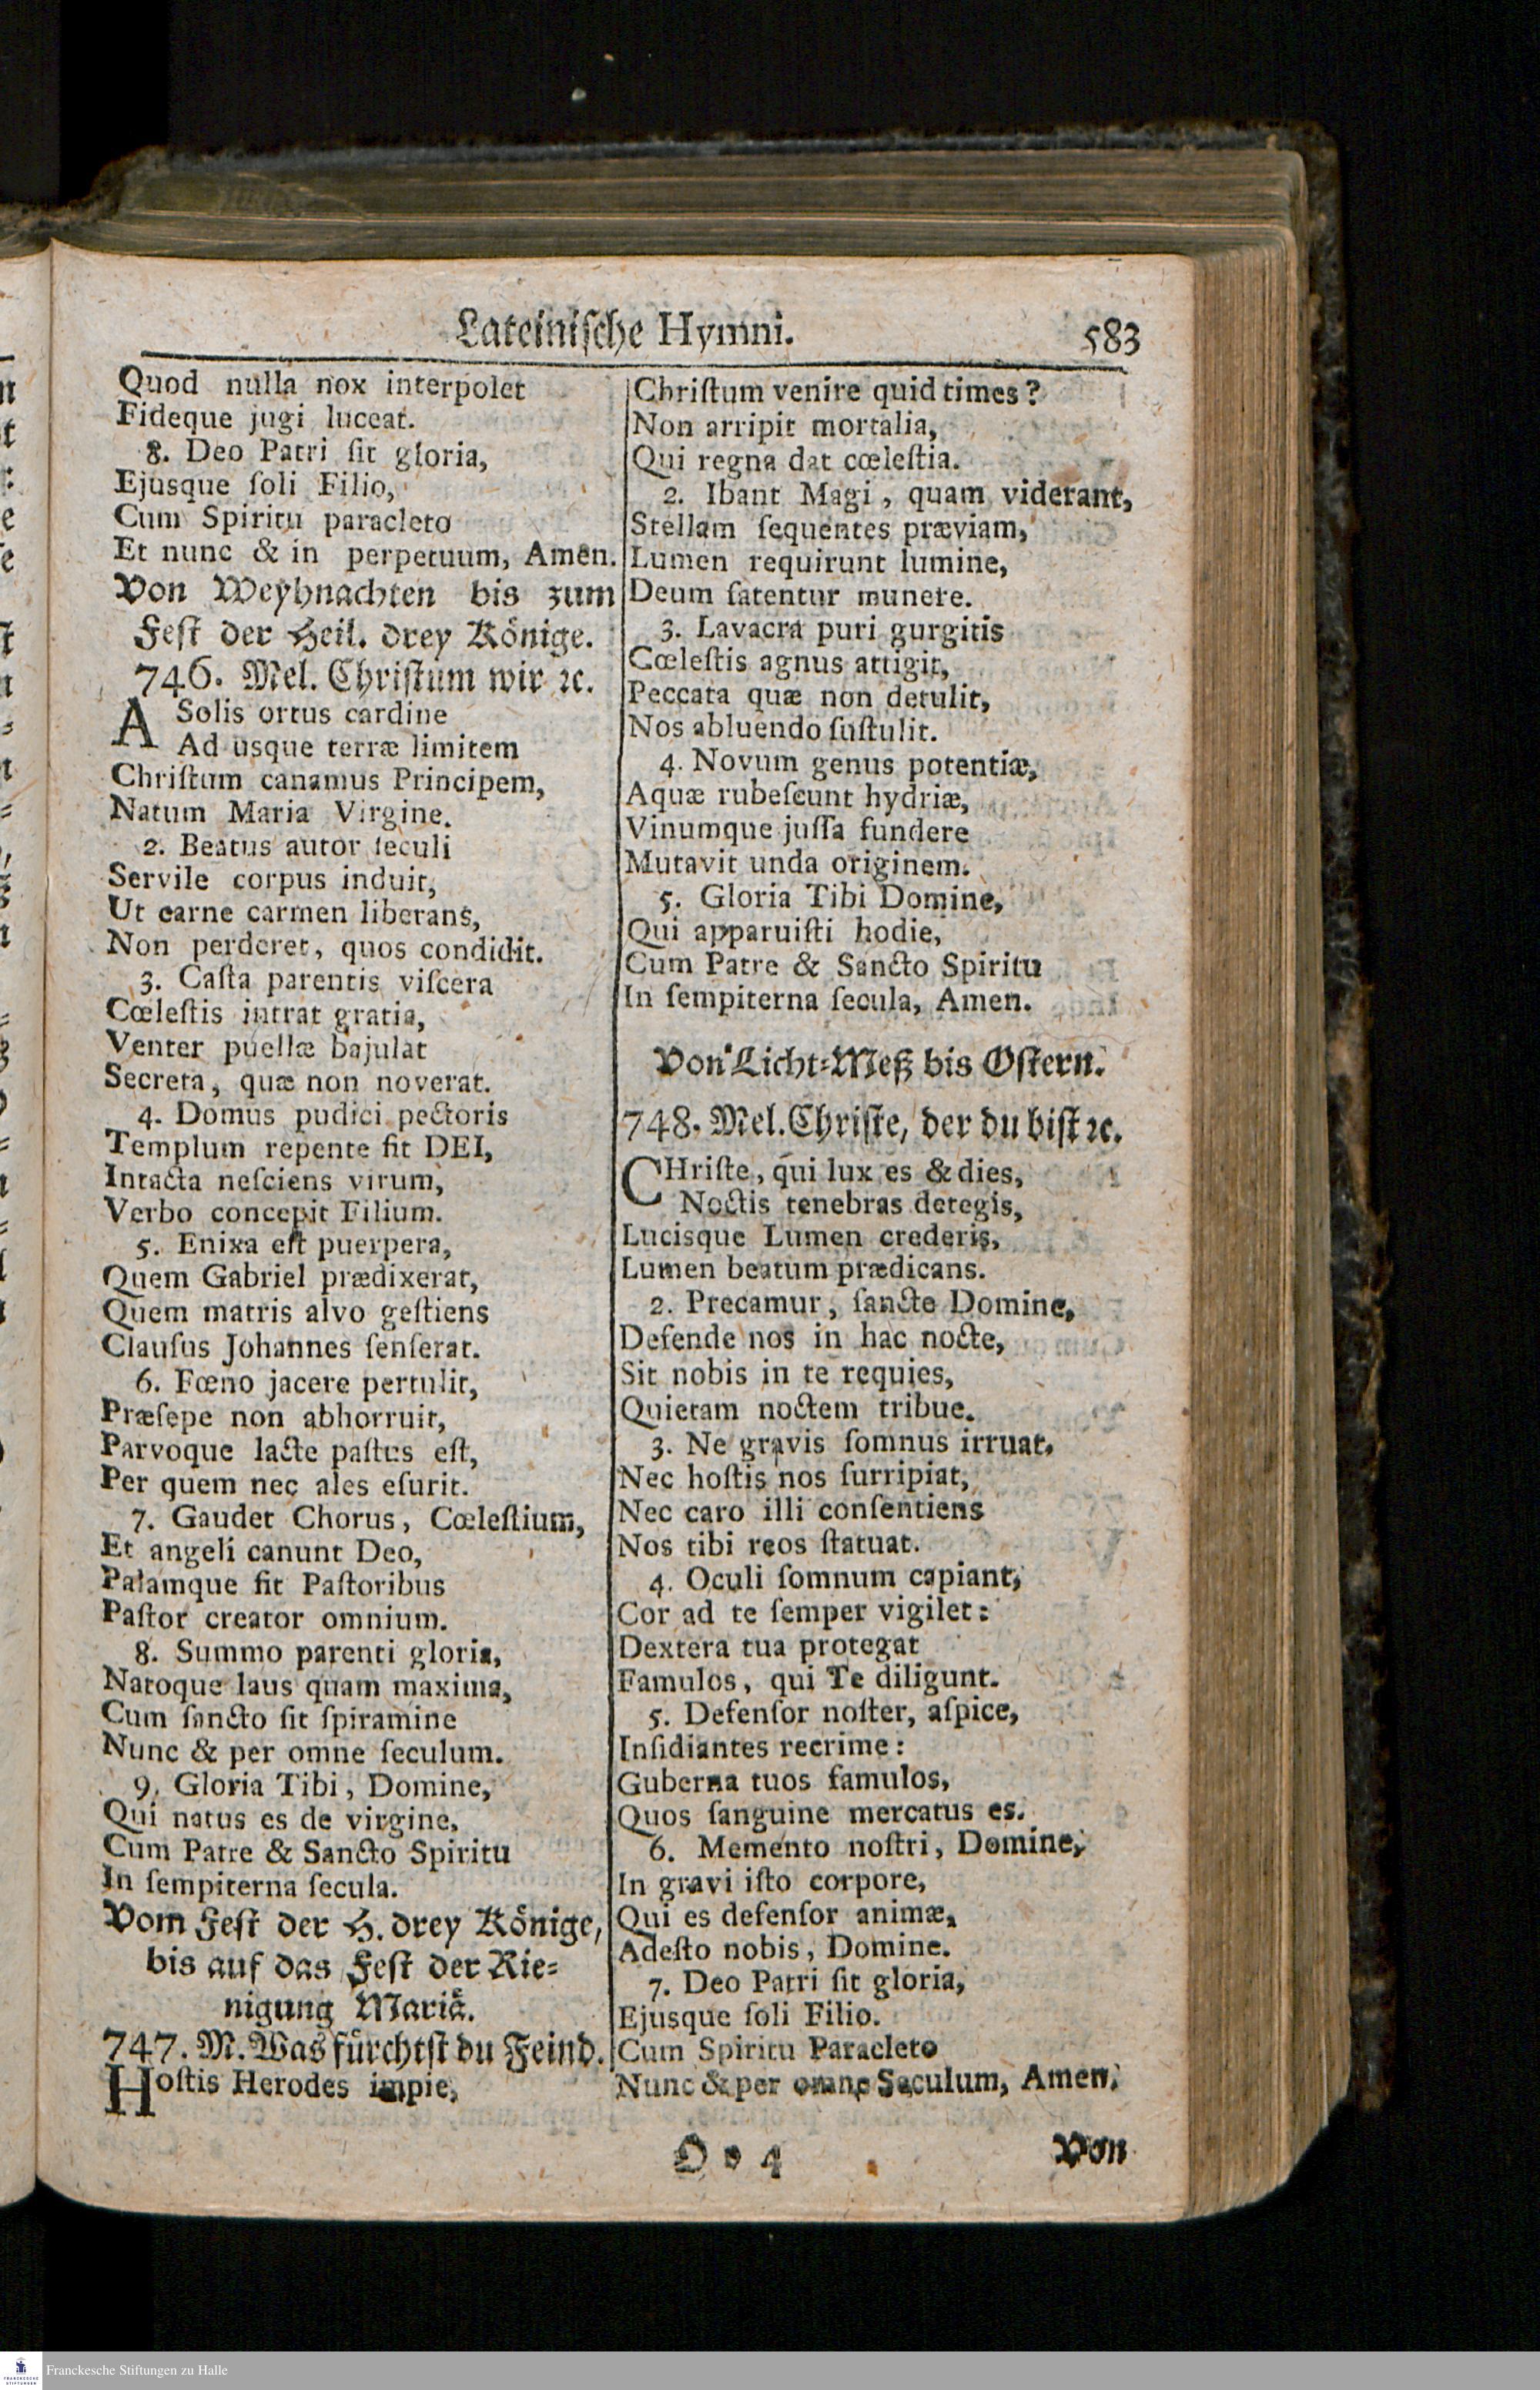 Lateiniſche Hymni.
583
Quod nulla nox interpolet
Fideque jugi luceat.
8. Deo Patri ſit gloria,
Ejusque ſoli Filio,
Cum Spiritu paracleto
Et nunc & in perpetuum, Amen.
Von Weyhnachten bis zum
Feſt der Heil. drey Könige.
746. Mel. Chriſtum wir ꝛc.
A Solis ortus cardine
Ad usque terræ limitem
Chriſtum canamus Principem,
Natum Maria Virgine.
2. Beatus autor ſeculi
Servile corpus induit,
Ut carne carmen liberans,
Non perderet, quos condidit.
3. Caſta parentis viſcera
Cœleſtis intrat gratia,
Venter puellæ bajulat
Secreta, quæ non noverat.
4. Domus pudici pectoris
Templum repente fit DEI,
Intacta neſciens virum,
Verbo concepit Filium.
5. Enixa eſt puerpera,
Quem Gabriel prædixerat,
Quem matris alvo geſtiens
Clauſus Johannes ſenſerat.
6. Fœno jacere pertulit,
Præſepe non abhorruit,
Parvoque lacte paſtus eſt,
Per quem nec ales eſurit.
7. Gaudet Chorus, Cœleſtium,
Et angeli canunt Deo,
Palamque fit Paſtoribus
Paſtor creator omnium.
8. Summo parenti gloria,
Natoque laus quam maxima,
Cum ſancto ſit ſpiramine
Nunc & per omne ſeculum.
9. Gloria Tibi, Domine,
Qui natus es de virgine,
Cum Patre & Sancto Spiritu
In ſempiterna ſecula.
Vom Feſt der H. drey Könige,
bis auf das Feſt der Rie-
nigung Mariä.
747. M. Was fürchtſt du Feind.
Hoſtis Herodes impie,
Chriſtum venire quid times?
Non arripit mortalia,
Qui regna dat cœleſtia.
2. Ibant Magi, quam viderant,
Stellam ſequentes præviam,
Lumen requirunt lumine,
Deum fatentur munere.
3. Lavacra puri gurgitis
Cœleſtis agnus attigit,
Peccata quæ non detulit,
Nos abluendo ſuſtulit.
4. Novum genus potentiæ,
Aquæ rubeſcunt hydriæ,
Vinumque juſſa fundere
Mutavit unda originem.
5. Gloria Tibi Domine,
Qui apparuiſti hodie,
Cum Patre & Sancto Spiritu
In ſempiterna ſecula, Amen.
Von Licht-Meß bis Oſtern.
748. Mel. Chriſte, der du biſt ꝛc.
CHriſte, qui lux es & dies,
Noctis tenebras detegis,
Lucisque Lumen crederis,
Lumen beatum prædicans.
2. Precamur, ſancte Domine,
Defende nos in hac nocte,
Sit nobis in te requies,
Quietam noctem tribue.
3. Ne gravis ſomnus irruat,
Nec hoſtis nos ſurripiat,
Nec caro illi conſentiens
Nos tibi reos ſtatuat.
4. Oculi ſomnum capiant,
Cor ad te ſemper vigilet:
Dextera tua protegat
Famulos, qui Te diligunt.
5. Defenſor noſter, aſpice,
Inſidiantes recrime:
Guberna tuos famulos,
Quos ſanguine mercatus es.
6. Memento noſtri, Domine,
In gravi iſto corpore,
Qui es defenſor animæ,
Adeſto nobis, Domine.
7. Deo Patri ſit gloria,
Ejusque ſoli Filio.
Cum Spiritu Paracleto
Nunc & per omne Seculum, Amen.
O o 4
Von
FRANCKESCHE STIFTUNGEN
Franckesche Stiftungen zu Halle